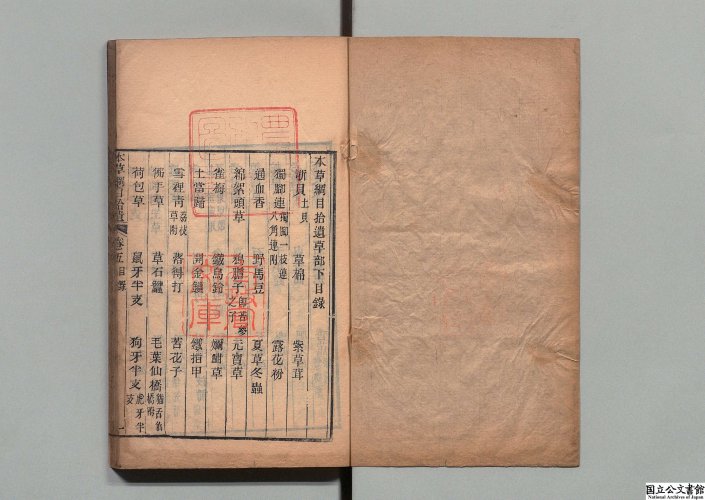 本草綱目拾遺草部下目錄
浙貝 土貝 草棉 紫草茸
獨腳連 獨闖一枝連 八角連附 露花粉
通血香 野馬豆 夏草冬蟲
綿絮頭草 鴉膽子 即苦參之子 元寶草
雀梅 鐵馬鈴
土當歸 開金鎖 鐵指甲
雪裡青 荔枝草附 落得打 苦花子
佛手草 草石蠶 毛葉仙橋 翁橋附
荷包草 鼠牙半支 狗牙半支 虎牙半支
本草綱目拾遺 卷五目錄 一
国立公文書館
National Archives of Japan